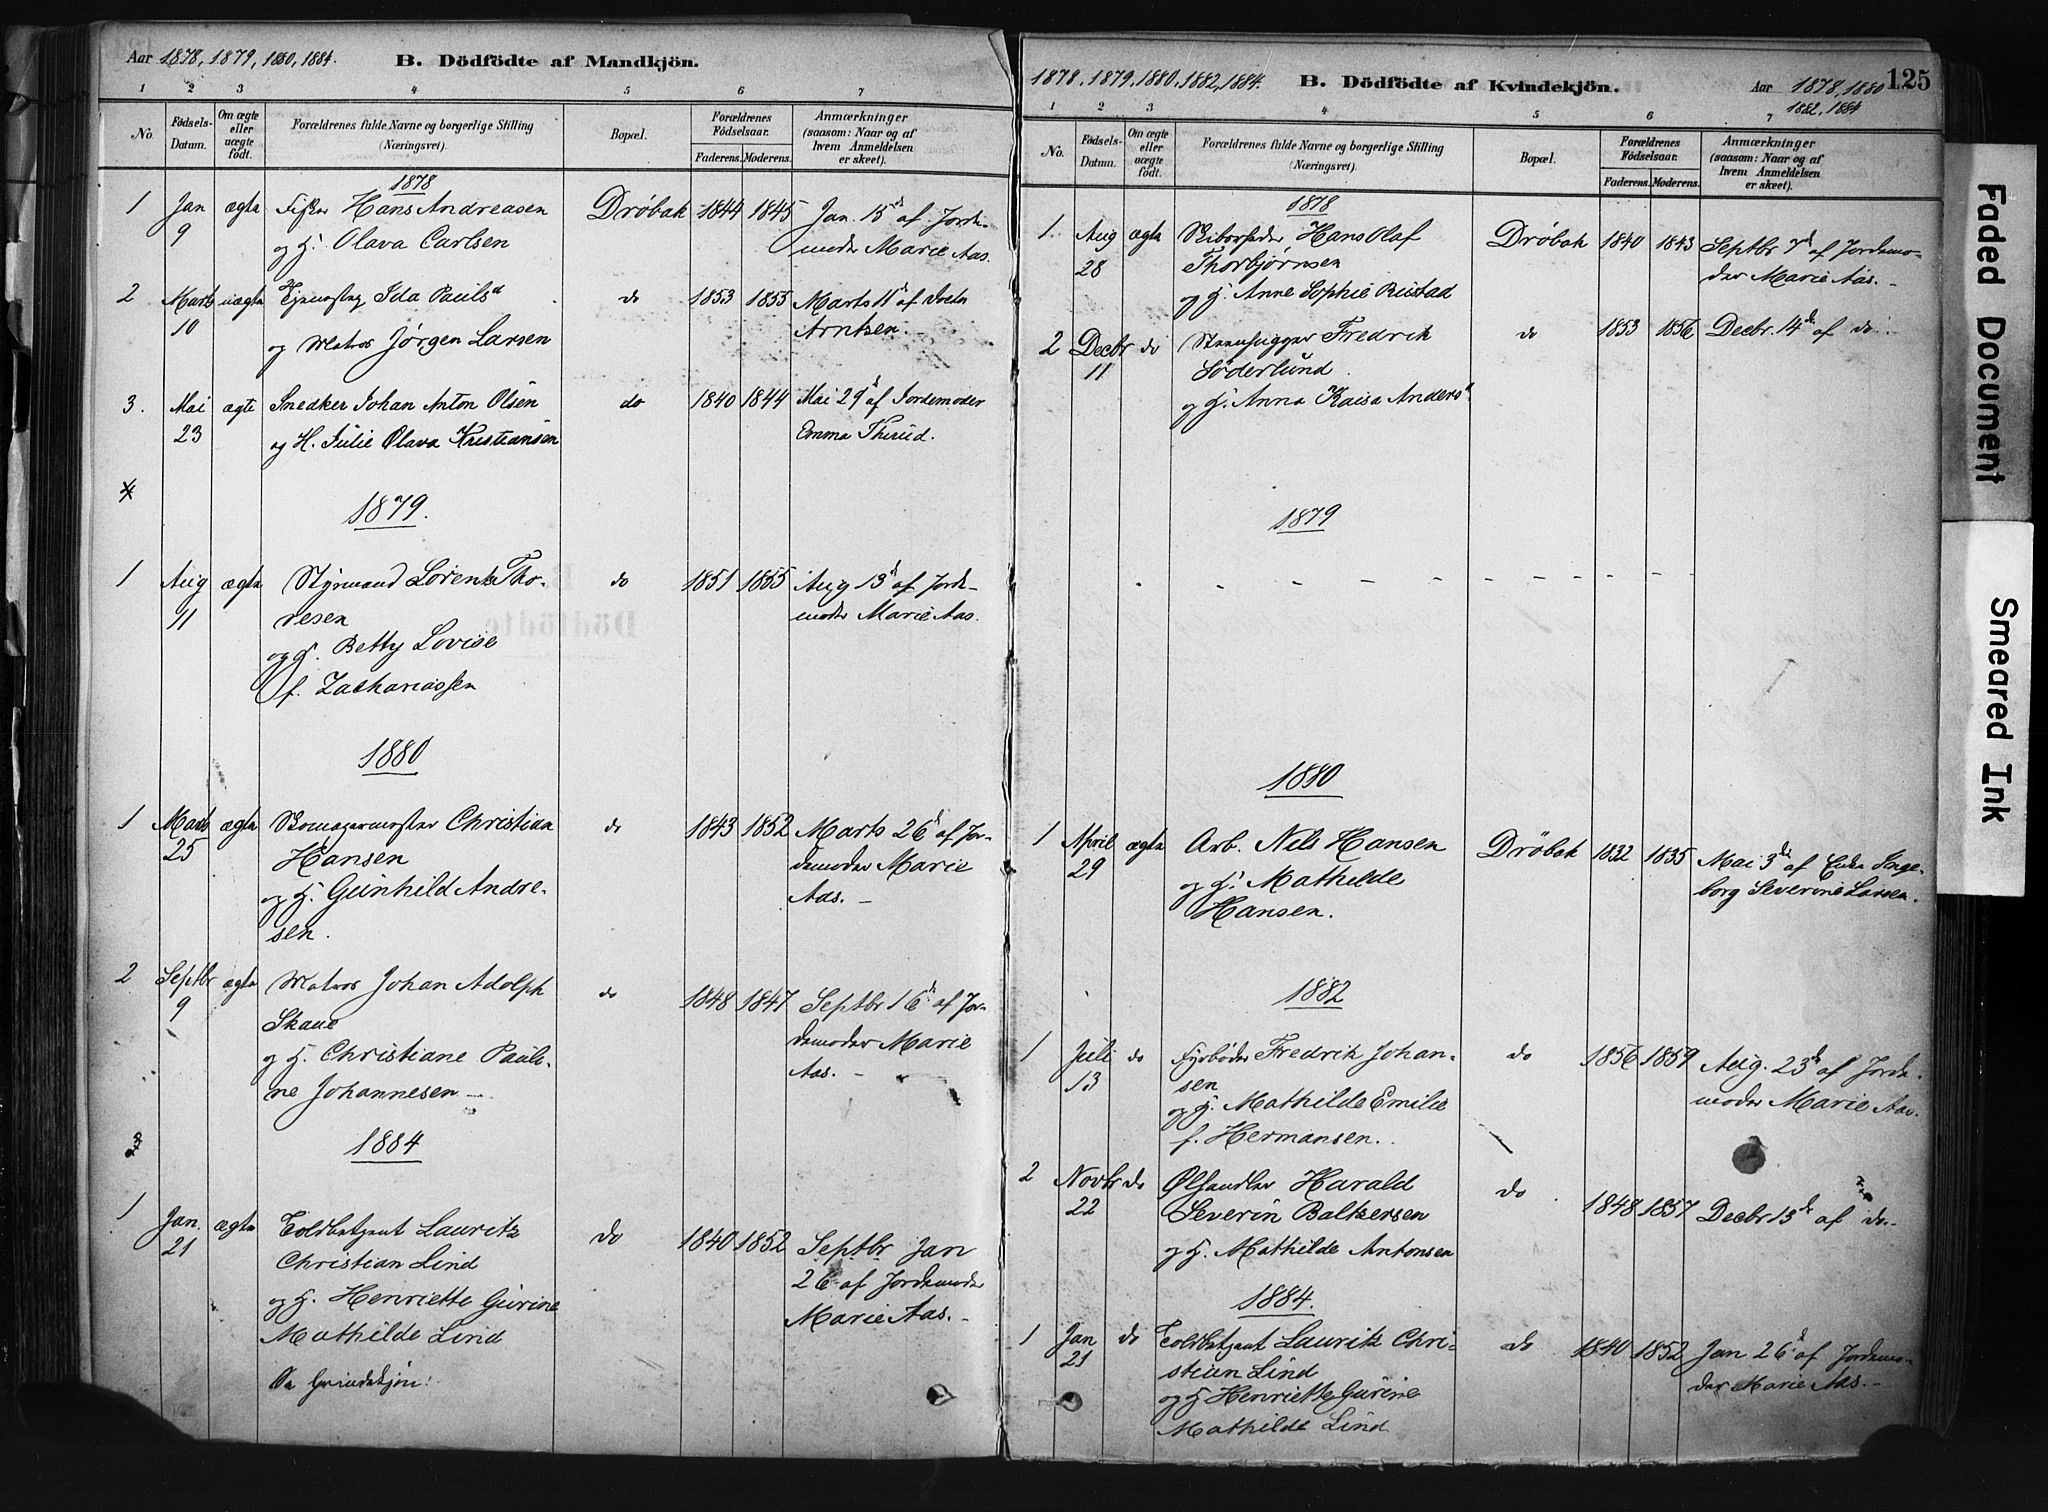 Aar 1878, 1879, 1880, 1884.
B. Dödfödte af Mandkjön.
1 2 3 4 5 6 7
No.
Födsels-
Datum.
Om ægte
eller
uægte
födt.
Forældrenes fulde Navne og borgerlige Stilling
(Næringsvei).
Bopæl.
Forældrenes
Födselsaar.
Faderens. Moderens.
Anmærkninger
(saasom: Naar og af
hvem Anmeldelsen
er skeet).
1878
1 Jan ægte Fisker Hans Andreasen Drøbak 1844 1845 Jan. 15d af Jorde-
9 og H. Olava Carlsen moder Marie Aas.
2 Marts uægte Ida Pauls do 1853 1855 Marts 11d af
10 og Matros Jørgen Larsen Arntzen.
3. Mai ægte Smedker Johan Anton Olsen do 1840 1844 Mai 29d af Jordemoder
23 og H. Julie Olava Kristiansen Emma Thrud.
4
1879.
1 Aug ægte Styrmand Lorentz Tho- do 1851 1855 Aug 13d af Jorde-
11 resen moder Marie Aas.
og H. Betty Lovise
f. Zachariassen
1880
1 Marts ægte Skomagermester Christian do 1843 1852 Marts 26d af Jor-
25 Hansen demoder Marie
og H. Gunhild Andre- Aas. –
sen.
2 Septbr ægte Matros Johan Adolph do 1848 1847 Septbr 16d af Jor-
9 Skaue demoder Marie
og H. Christiane Pauli- Aas. –
ne Johannesen –
1884
1 Jan. ægte Toldbetjent Lauritz do 1840 1852 Septbr Jan
21 Christian Lind 26 af Jordemoder
og H. Henriette Gurine Marie Aas. –
Mathilde Lind
1878, 1879, 1880, 1882, 1884.
B. Dödfödte af Kvindekjön.
Aar 1878, 1880
1882, 1884
125
1 2 3 4 5 6 7
No.
Födsels-
Datum.
Om ægte
eller
uægte
födt.
Forældrenes fulde Navne og borgerlige Stilling
(Næringsvei).
Bopæl.
Forældrenes
Födselsaar.
Faderens. Moderens.
Anmærkninger
(saasom: Naar og af
hvem Anmeldelsen
er skeet).
1878
1 Aug ægte Skibsreder Hans Olaf Drøbak 1840 1843 Septbr 7d af Jordemo-
28 Thorbjørnsen der Marie Aas. –
og H. Anne Sophie Rustad
2 Decbr do Steenhugger Fredrik do 1853 1856 Decbr. 14de af do –
11 Söderlund.
og H. Anna Kaisa Anders
1879
– – – – – – – – –
1880
1 April ægte Arb. Nils Hansen Drøbak 1832 1835 Mai 3die af Enke Inge-
29 og H. Mathilde borg Severine Larsen.
Hansen.
1882
1 Juli do Fyrbøder Fredrik Johan- do 1856 1859 Aug. 23de af Jorde-
13 sen moder Marie Aas.
og H. Mathilde Emilie
f. Hermansen.
2 Novbr do Ølhandler Harald do 1848 1857 Decbr 13de af do –
22 Severin Baltzersen
og H. Mathilde Antonsen
1884.
1 Jan do Toldbetjent Lauritz Chri- do 1840 1852 Jan 26d af Jordemo-
21 stian Lind der Marie Aas. –
og H Henriette Gurine
Mathilde Lind
Faded Document
Smeared Ink